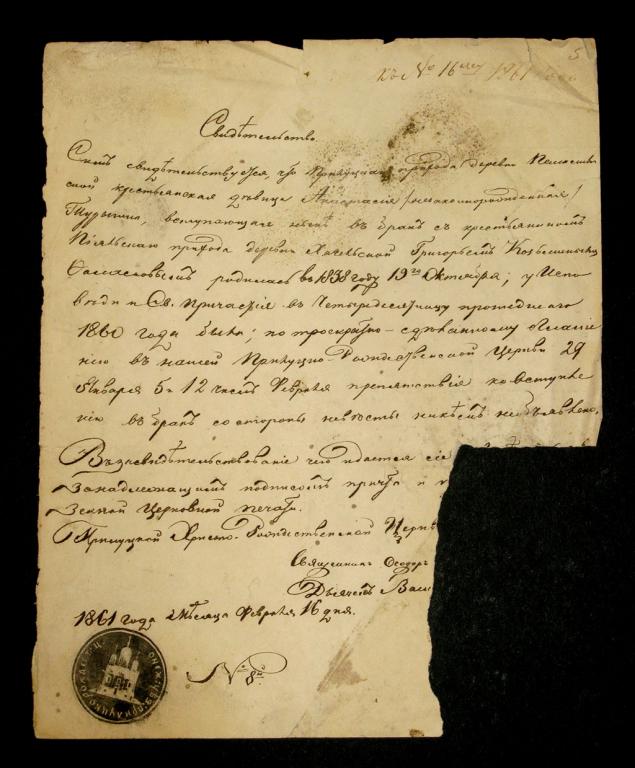 къ № 16 1861 года
Свидѣтельство.
Симъ свидѣтельствуется, что прихода деревни
ской крестьянская дѣвица Анастасія /незаконнорожденная/
вступающая нынѣ въ бракъ съ крестьяниномъ
прихода деревни Григорьемъ
родилась въ 1838 году 19го Октября; у Испо
вѣди и Св. Причастія въ Четыредесятницу прошедшаго
1860 года была; по троекратно-сдѣланному оглаше
нію въ нашей Рождественской Церкви 29
Января 5 и 12 чиселъ Февраля препятствія ко вступле
нію въ бракъ со стороны невѣсты никѣмъ не объявлено.
Въ засвидѣтельствованіе чего и дается сіе
За надлежащимъ подписомъ причта и
Церковной печати.
Христо-Рождественской Церкв
Священникъ Ѳеодоръ
Дьячекъ Васи
1861 года мѣсяца Февраля 16 дня.
№ 8й